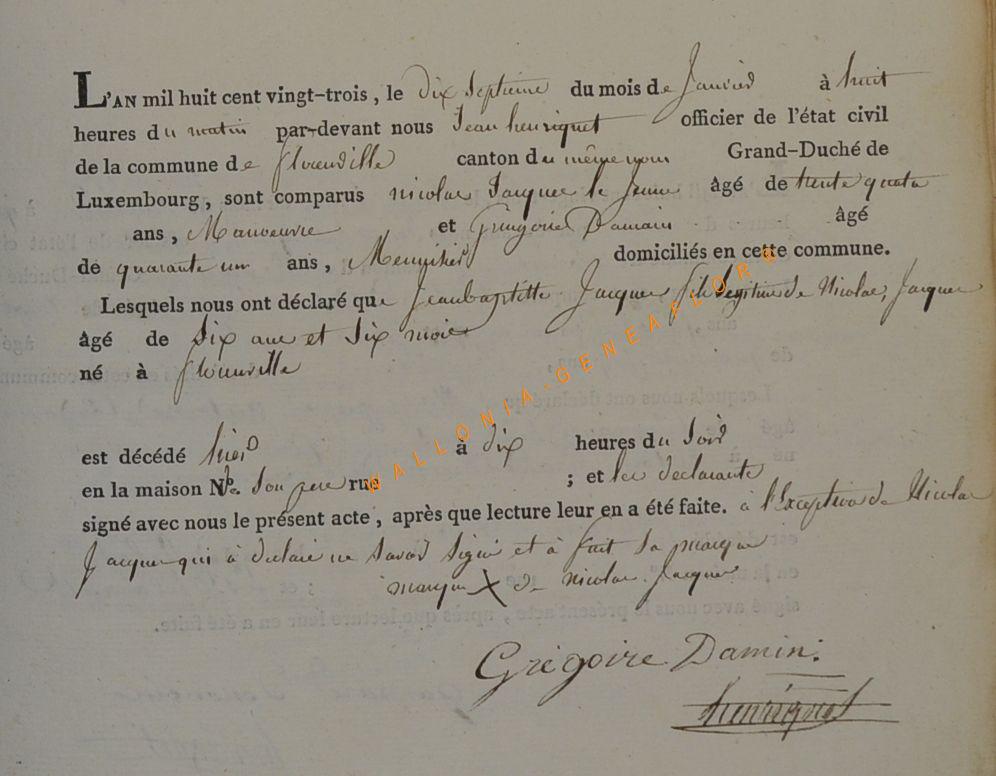 L'AN mil huit cent vingt-trois, le dix Septieme du mois de Janvier à huit
heures du matin par-devant nous Jean henriquet officier de l'état civil
de la commune de florenville canton du même nom Grand-Duché de
Luxembourg, sont comparus nicolas Jacques le Jeune âgé de trente quatre
ans, Manoeuvre et Gregoire Damain âgé
de quarante un ans, Menuisier domiciliés en cette commune.
Lesquels nous ont déclaré que Jeanbaptitte Jacques fils legitime de Nicolas Jacques
âgé de Six ans et Six mois
né à florenville
est décédé hier à dix heures du Soir
en la maison de Son pere rue ; et les declarants
signé avec nous le présent acte, après que lecture leur en a été faite. à l'Exception de Nicolas
Jacques qui à declaré ne Savoir Signé et à fait Sa marque
marque X de nicolas Jacques
Grégoire Damin.
henriquet
WALLONIA-GENEAFLORO